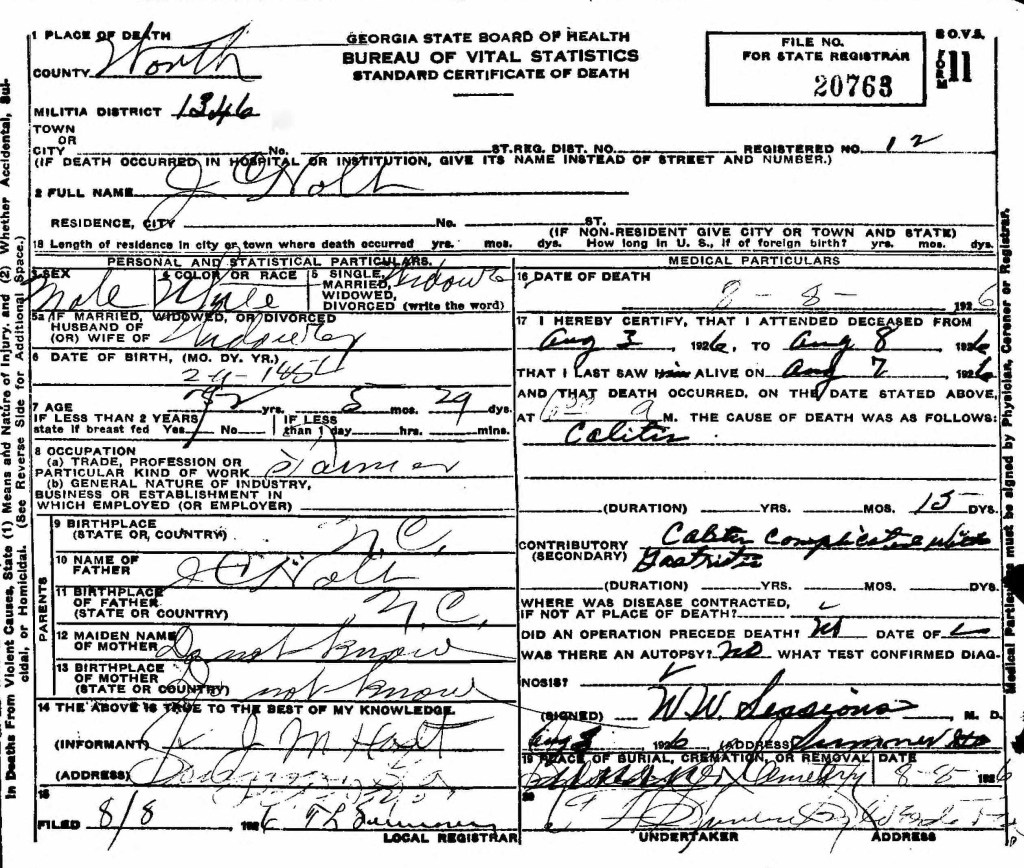 1 PLACE OF DEATH
COUNTY Worth
MILITIA DISTRICT 1346
TOWN
OR
CITY No. ST. REG. DIST. NO. REGISTERED NO. 12
(IF DEATH OCCURRED IN HOSPITAL OR INSTITUTION, GIVE ITS NAME INSTEAD OF STREET AND NUMBER.)
GEORGIA STATE BOARD OF HEALTH
BUREAU OF VITAL STATISTICS
STANDARD CERTIFICATE OF DEATH
FILE NO.
FOR STATE REGISTRAR
20763
B.O.V.S.
FORM 11
2 FULL NAME J C Holt
RESIDENCE, CITY No. ST.
(IF NON-RESIDENT GIVE CITY OR TOWN AND STATE)
18 Length of residence in city or town where death occurred yrs. mos. dys. How long in U. S., if of foreign birth? yrs. mos. dys.
PERSONAL AND STATISTICAL PARTICULARS.
3 SEX Male
4 COLOR OR RACE
5 SINGLE, MARRIED, WIDOWED, DIVORCED (write the word)
5a IF MARRIED, WIDOWED, OR DIVORCED
HUSBAND OF
(OR) WIFE OF
6 DATE OF BIRTH, (MO. DY. YR.)
7 AGE 72 yrs. 5 mos. 29 dys.
IF LESS THAN 2 YEARS state if breast fed Yes No
IF LESS than 1 day hrs. mins.
8 OCCUPATION
(a) TRADE, PROFESSION OR
PARTICULAR KIND OF WORK Farmer
(b) GENERAL NATURE OF INDUSTRY,
BUSINESS OR ESTABLISHMENT IN
WHICH EMPLOYED (OR EMPLOYER)
PARENTS
9 BIRTHPLACE
(STATE OR, COUNTRY) N.C.
10 NAME OF
FATHER J C Holt
11 BIRTHPLACE
OF FATHER
(STATE OR COUNTRY) N.C.
12 MAIDEN NAME
OF MOTHER Do not Know
13 BIRTHPLACE
OF MOTHER
(STATE OR COUNTRY) Do not Know
14 THE ABOVE IS TRUE TO THE BEST OF MY KNOWLEDGE.
(INFORMANT) J M Holt
(ADDRESS)
15
FILED 8/8 1926
LOCAL REGISTRAR
MEDICAL PARTICULARS
16 DATE OF DEATH
8-8- 1926
17 I HEREBY CERTIFY, THAT I ATTENDED DECEASED FROM
Aug 3 1926, TO Aug 8 1926
THAT I LAST SAW him ALIVE ON Aug 7 1926
AND THAT DEATH OCCURRED, ON THE DATE STATED ABOVE,
AT a M. THE CAUSE OF DEATH WAS AS FOLLOWS:
(DURATION) YRS. MOS. 15 DYS.
CONTRIBUTORY
(SECONDARY)
(DURATION) YRS. MOS. DYS.
WHERE WAS DISEASE CONTRACTED,
IF NOT AT PLACE OF DEATH?
DID AN OPERATION PRECEDE DEATH? DATE OF
WAS THERE AN AUTOPSY? No WHAT TEST CONFIRMED DIAG-
NOSIS?
(SIGNED) W W. Sessions M. D.
Aug 8 1926 (ADDRESS) Sumner Ga
19 PLACE OF BURIAL, CREMATION, OR REMOVAL DATE
Cemetery 8-8- 1926
20
UNDERTAKER ADDRESS
In Deaths From Violent Causes, State (1) Means and Nature of Injury, and (2) Whether Accidental, Sui-
cidal, or Homicidal. (See Reverse Side for Additional Space.)
Medical Particulars must be signed by Physician, Coroner or Registrar.